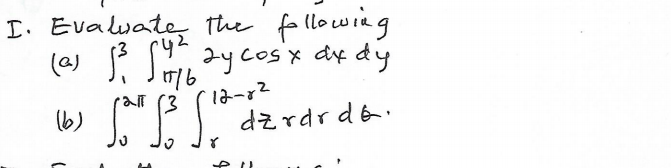 I. Evaluate the following
(a) ∫₁³ ∫_{π/6}^{y²} 2y cos x dx dy
(b) ∫₀^{2π} ∫₀³ ∫_r^{12-r²} dz r dr dθ.